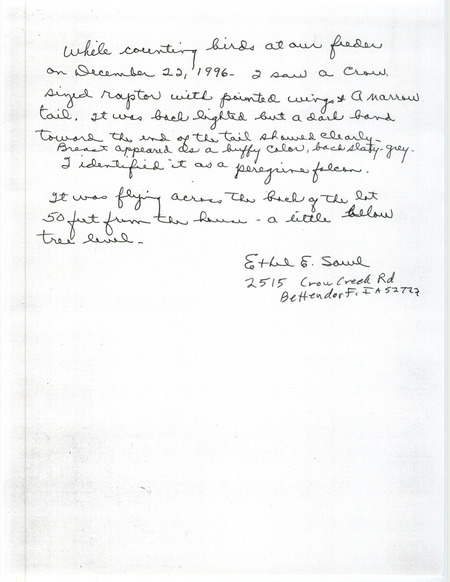 While counting birds at our feeder
on December 22, 1996- I saw a Crow
sized raptor with pointed wings & A narrow
tail. It was back lighted but a dark band
toward the end of the tail showed clearly-
Breast appeared as a buffy color, back slaty-grey.
I identified it as a peregrine falcon.
It was flying across the back of the lot
50 feet from the house - a little below
tree level-
Ethel E.
2515 Crow Creek Rd
Bettendorf, IA 52722